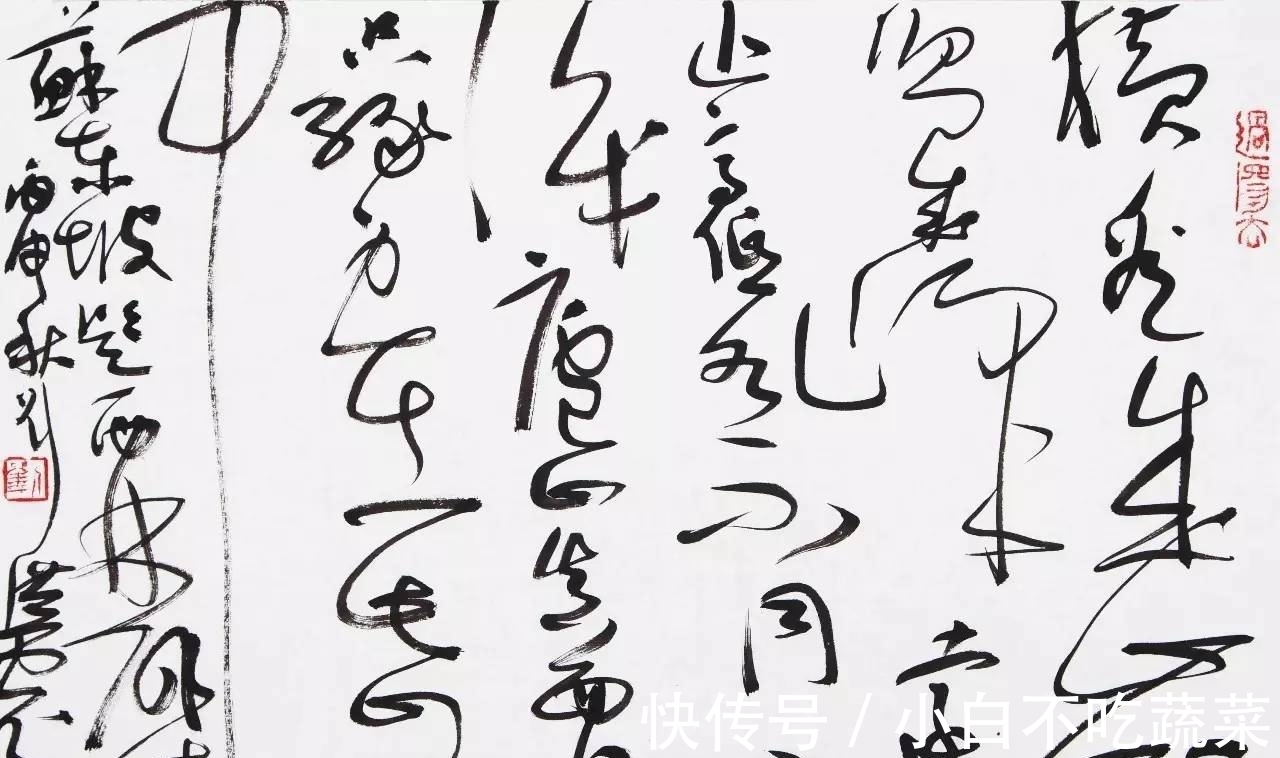 横看成嶺
侧成峰遠
近高低各不同
识廬山真面
只缘身在此山
中
蘇东坡题西林壁
丙申秋刘洪
快传号 / 小白不吃蔬菜